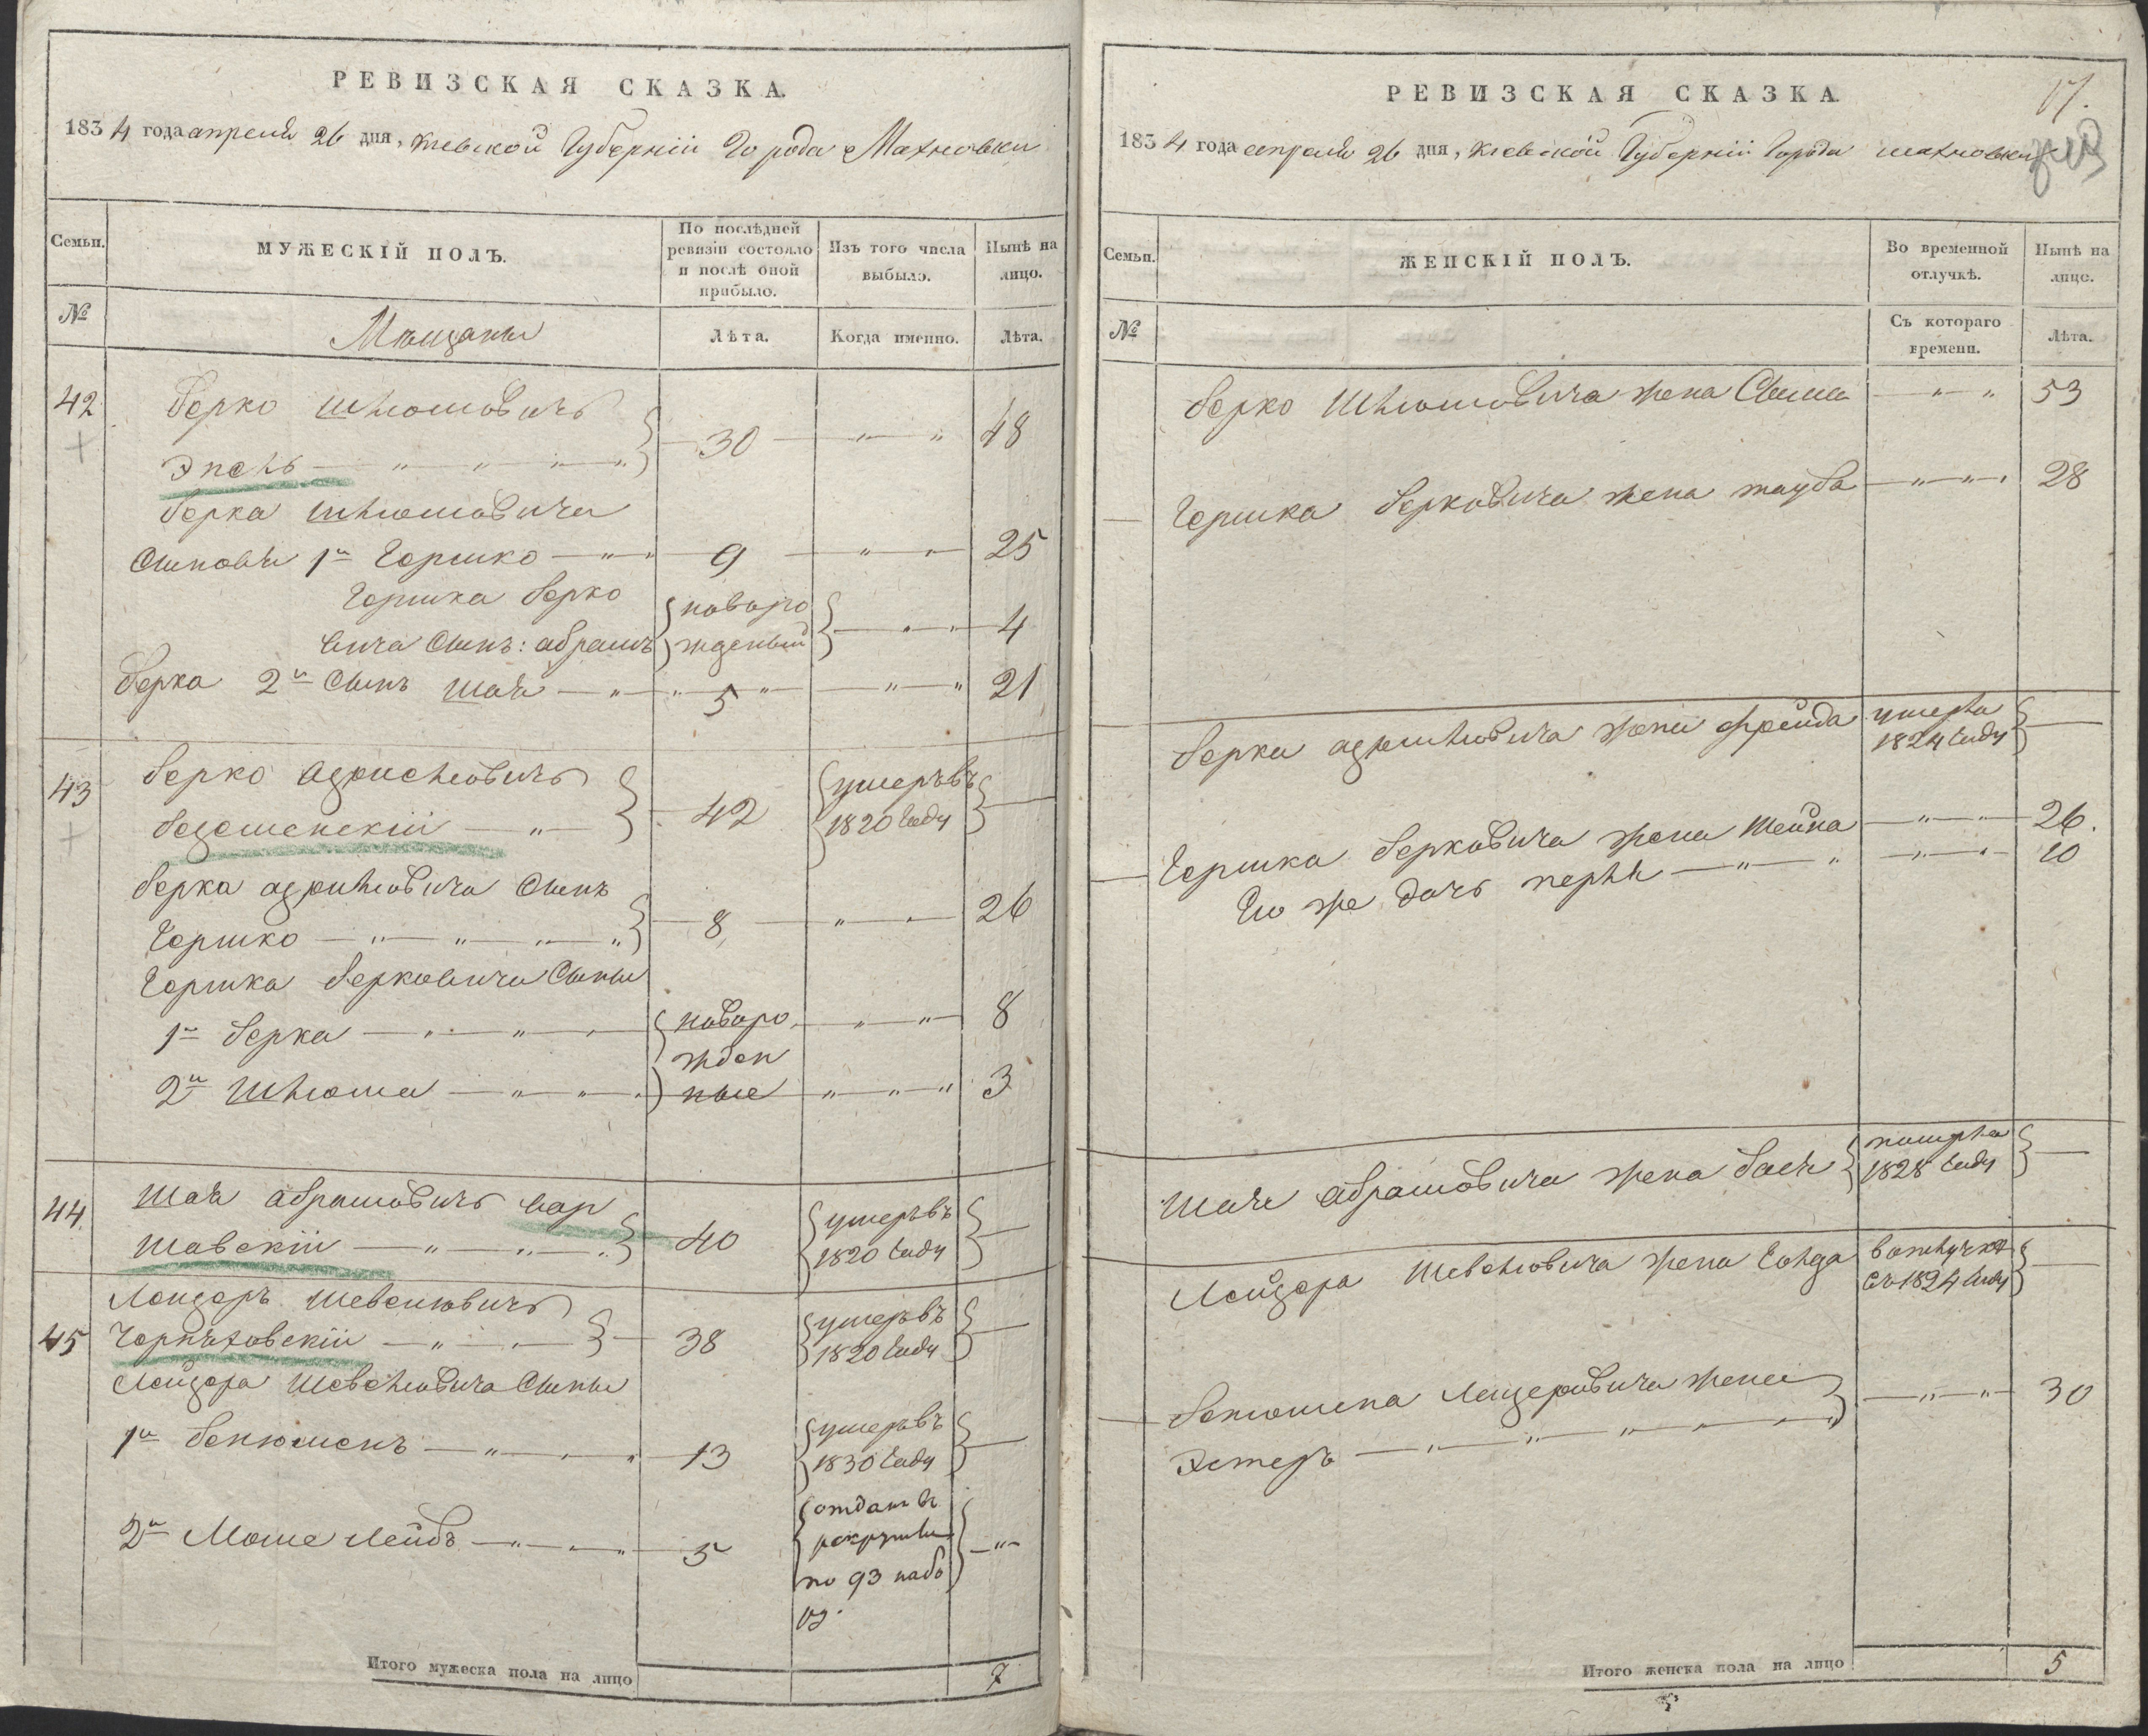 РЕВИЗСКАЯ СКАЗКА.
1834 года апреля 26 дня, Киевской Губернiи Города Махновки
Семьи.
МУЖЕСКІЙ ПОЛЪ.
По послѣдней
ревизіи состояло
и послѣ оной
прибыло.
Изъ того числа
выбыло.
Нынѣ на
лицо.
№
Мещаны
Лѣта.
Когда именно.
Лѣта.
42
Берко Шлiомовичъ
Эпель
30
48
Берка Шлiомовича
Сыновья 1й Гершко 9 25
Гершка Берко
вича Сынъ: абрамъ
новоро
жденый
4
Берка 2й Сынъ Шая 5 21
43
Берко
42
умеръ въ
1820 году
Берка Сынъ
Гершко 8 26
Гершка Берковича Сыны
1й Берка
новоро
жден
ные
8
2й Шлiома 3
44
Шая абрамовичъ Вар
шавскiй
40
умеръ въ
1820 году
45
Лейзеръ
Черняховскiй
38
умеръ въ
1820 году
Лейзера Сыны
1й Бенюменъ 13
умеръ въ
1830 году
2й Моше Лейбъ 5
отданъ в
рекруты
по 93 набо
ру.
Итого мужеска пола на лицо 7
РЕВИЗСКАЯ СКАЗКА.
17.
1834 года апреля 26 дня, Киевской Губернiи Города Махновки
Семьи.
ЖЕНСКІЙ ПОЛЪ.
Во временной
отлучкѣ.
Нынѣ на
лице.
№
Съ котораго
времени.
Лѣта.
Берко Шлiомовича жена 53
Гершка Берковича жена тауба 28
Берка жена фрейда
умерла
1824 году
Гершка Берковича жена Шейна 26.
Его же дочь перля 10
Шаи абрамовича жена бася
1828 году
Лейзера жена Голда
в отлучке
съ 1824 году
Бенюмена Лейзеровича жена
Эстеръ
30
Итого женска пола на лицо 5